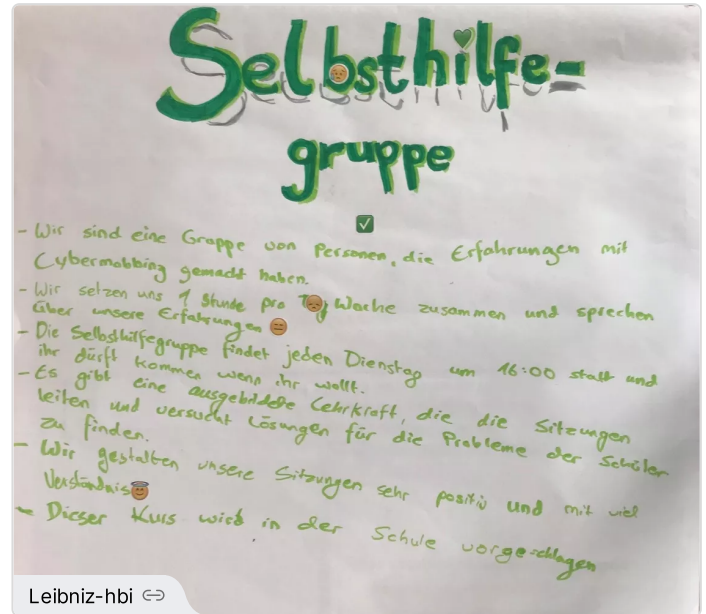 Selbsthilfe-
gruppe
- Wir sind eine Gruppe von Personen, die Erfahrungen mit
Cybermobbing gemacht haben.
- Wir setzen uns 1 Stunde pro Woche zusammen und sprechen
über unsere Erfahrungen
- Die Selbsthilfegruppe findet jeden Dienstag um 16:00 statt und
ihr dürft kommen wenn ihr wollt.
- Es gibt eine ausgebildete Lehrkraft, die die Sitzungen
leiten und versucht Lösungen für die Probleme der Schüler
zu finden.
- Wir gestalten unsere Sitzungen sehr positiv und mit viel
Verständnis
- Dieser Kurs wird in der Schule vorgeschlagen
Leibniz-hbi